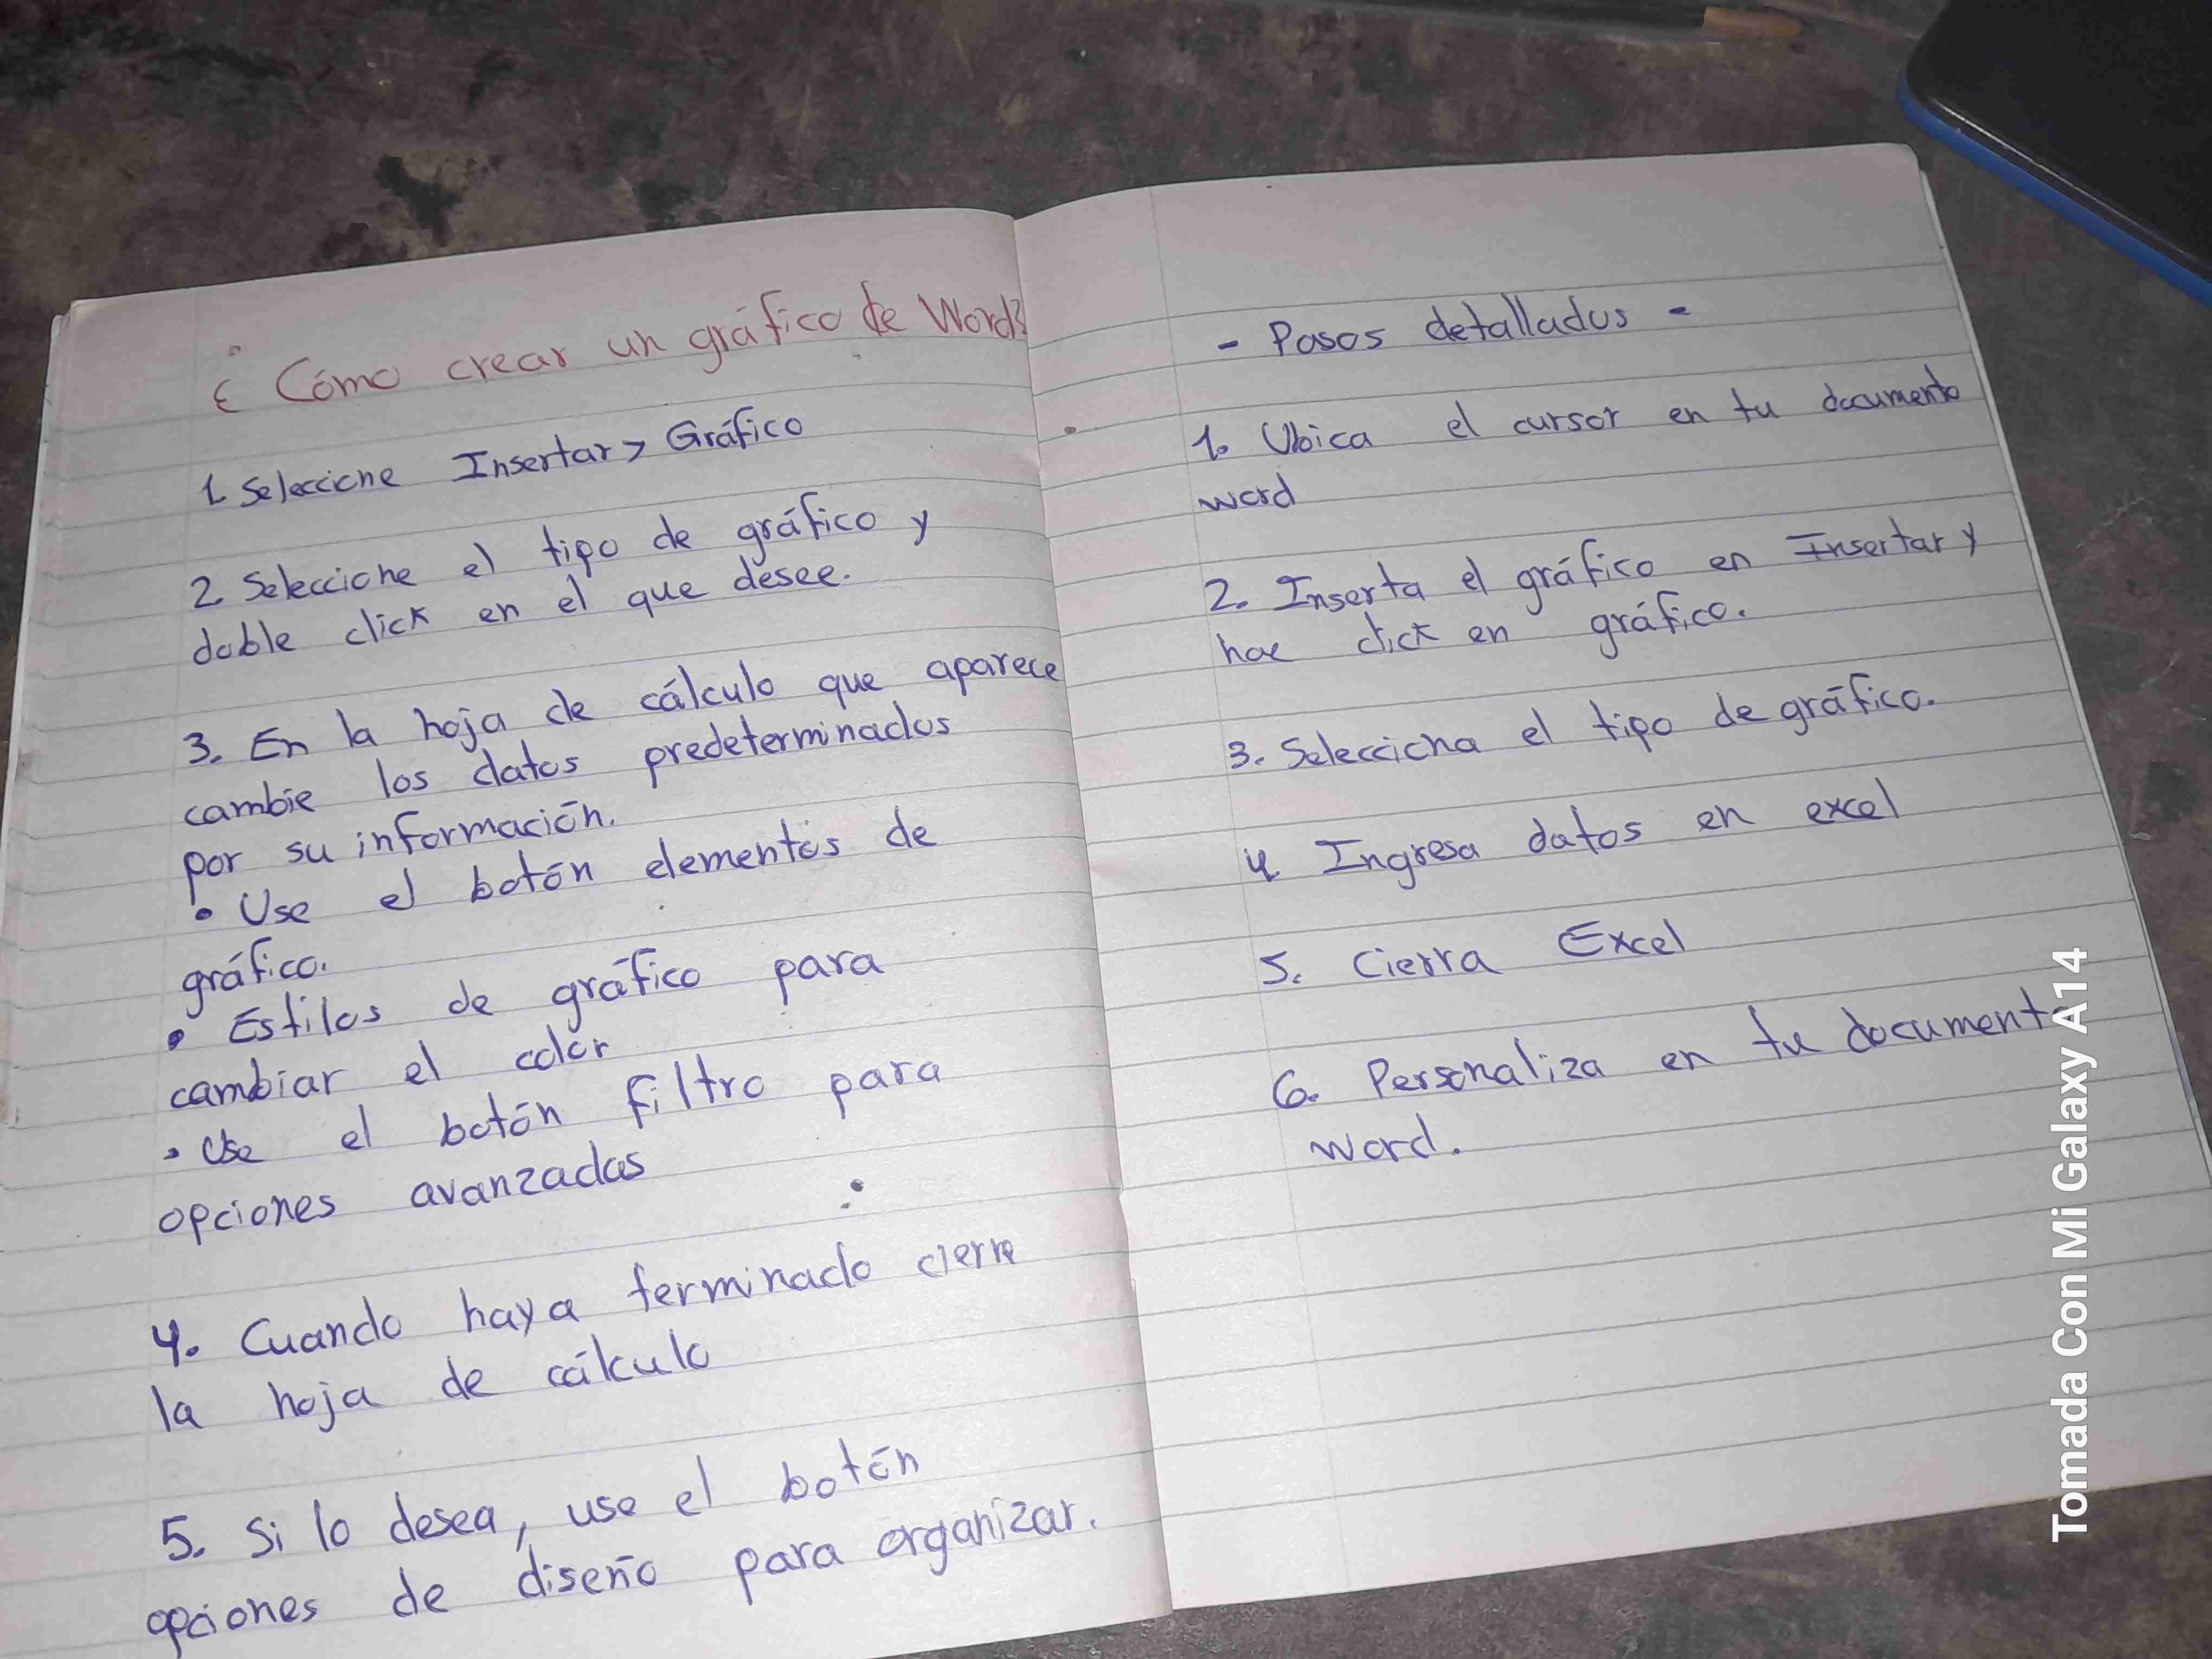 ¿Cómo crear un gráfico de Word?
1. Seleccione Insertar > Gráfico
2. Seleccione el tipo de gráfico y
doble click en el que desee.
3. En la hoja de cálculo que aparece
cambie los datos predeterminados
por su información.
• Use el botón elementos de
gráfico.
• Estilos de gráfico para
cambiar el color
• Use el botón filtro para
opciones avanzadas
4. Cuando haya terminado cierre
la hoja de cálculo
5. Si lo desea, use el botón
opciones de diseño para organizar.
- Pasos detallados -
1. Ubica el cursor en tu documento
word
2. Inserta el gráfico en Insertar y
hae click en gráfico.
3. Selecciona el tipo de gráfico.
4 Ingresa datos en excel
5. Cierra Excel
6. Personaliza en tu documento
word.
Tomada Con Mi Galaxy A14